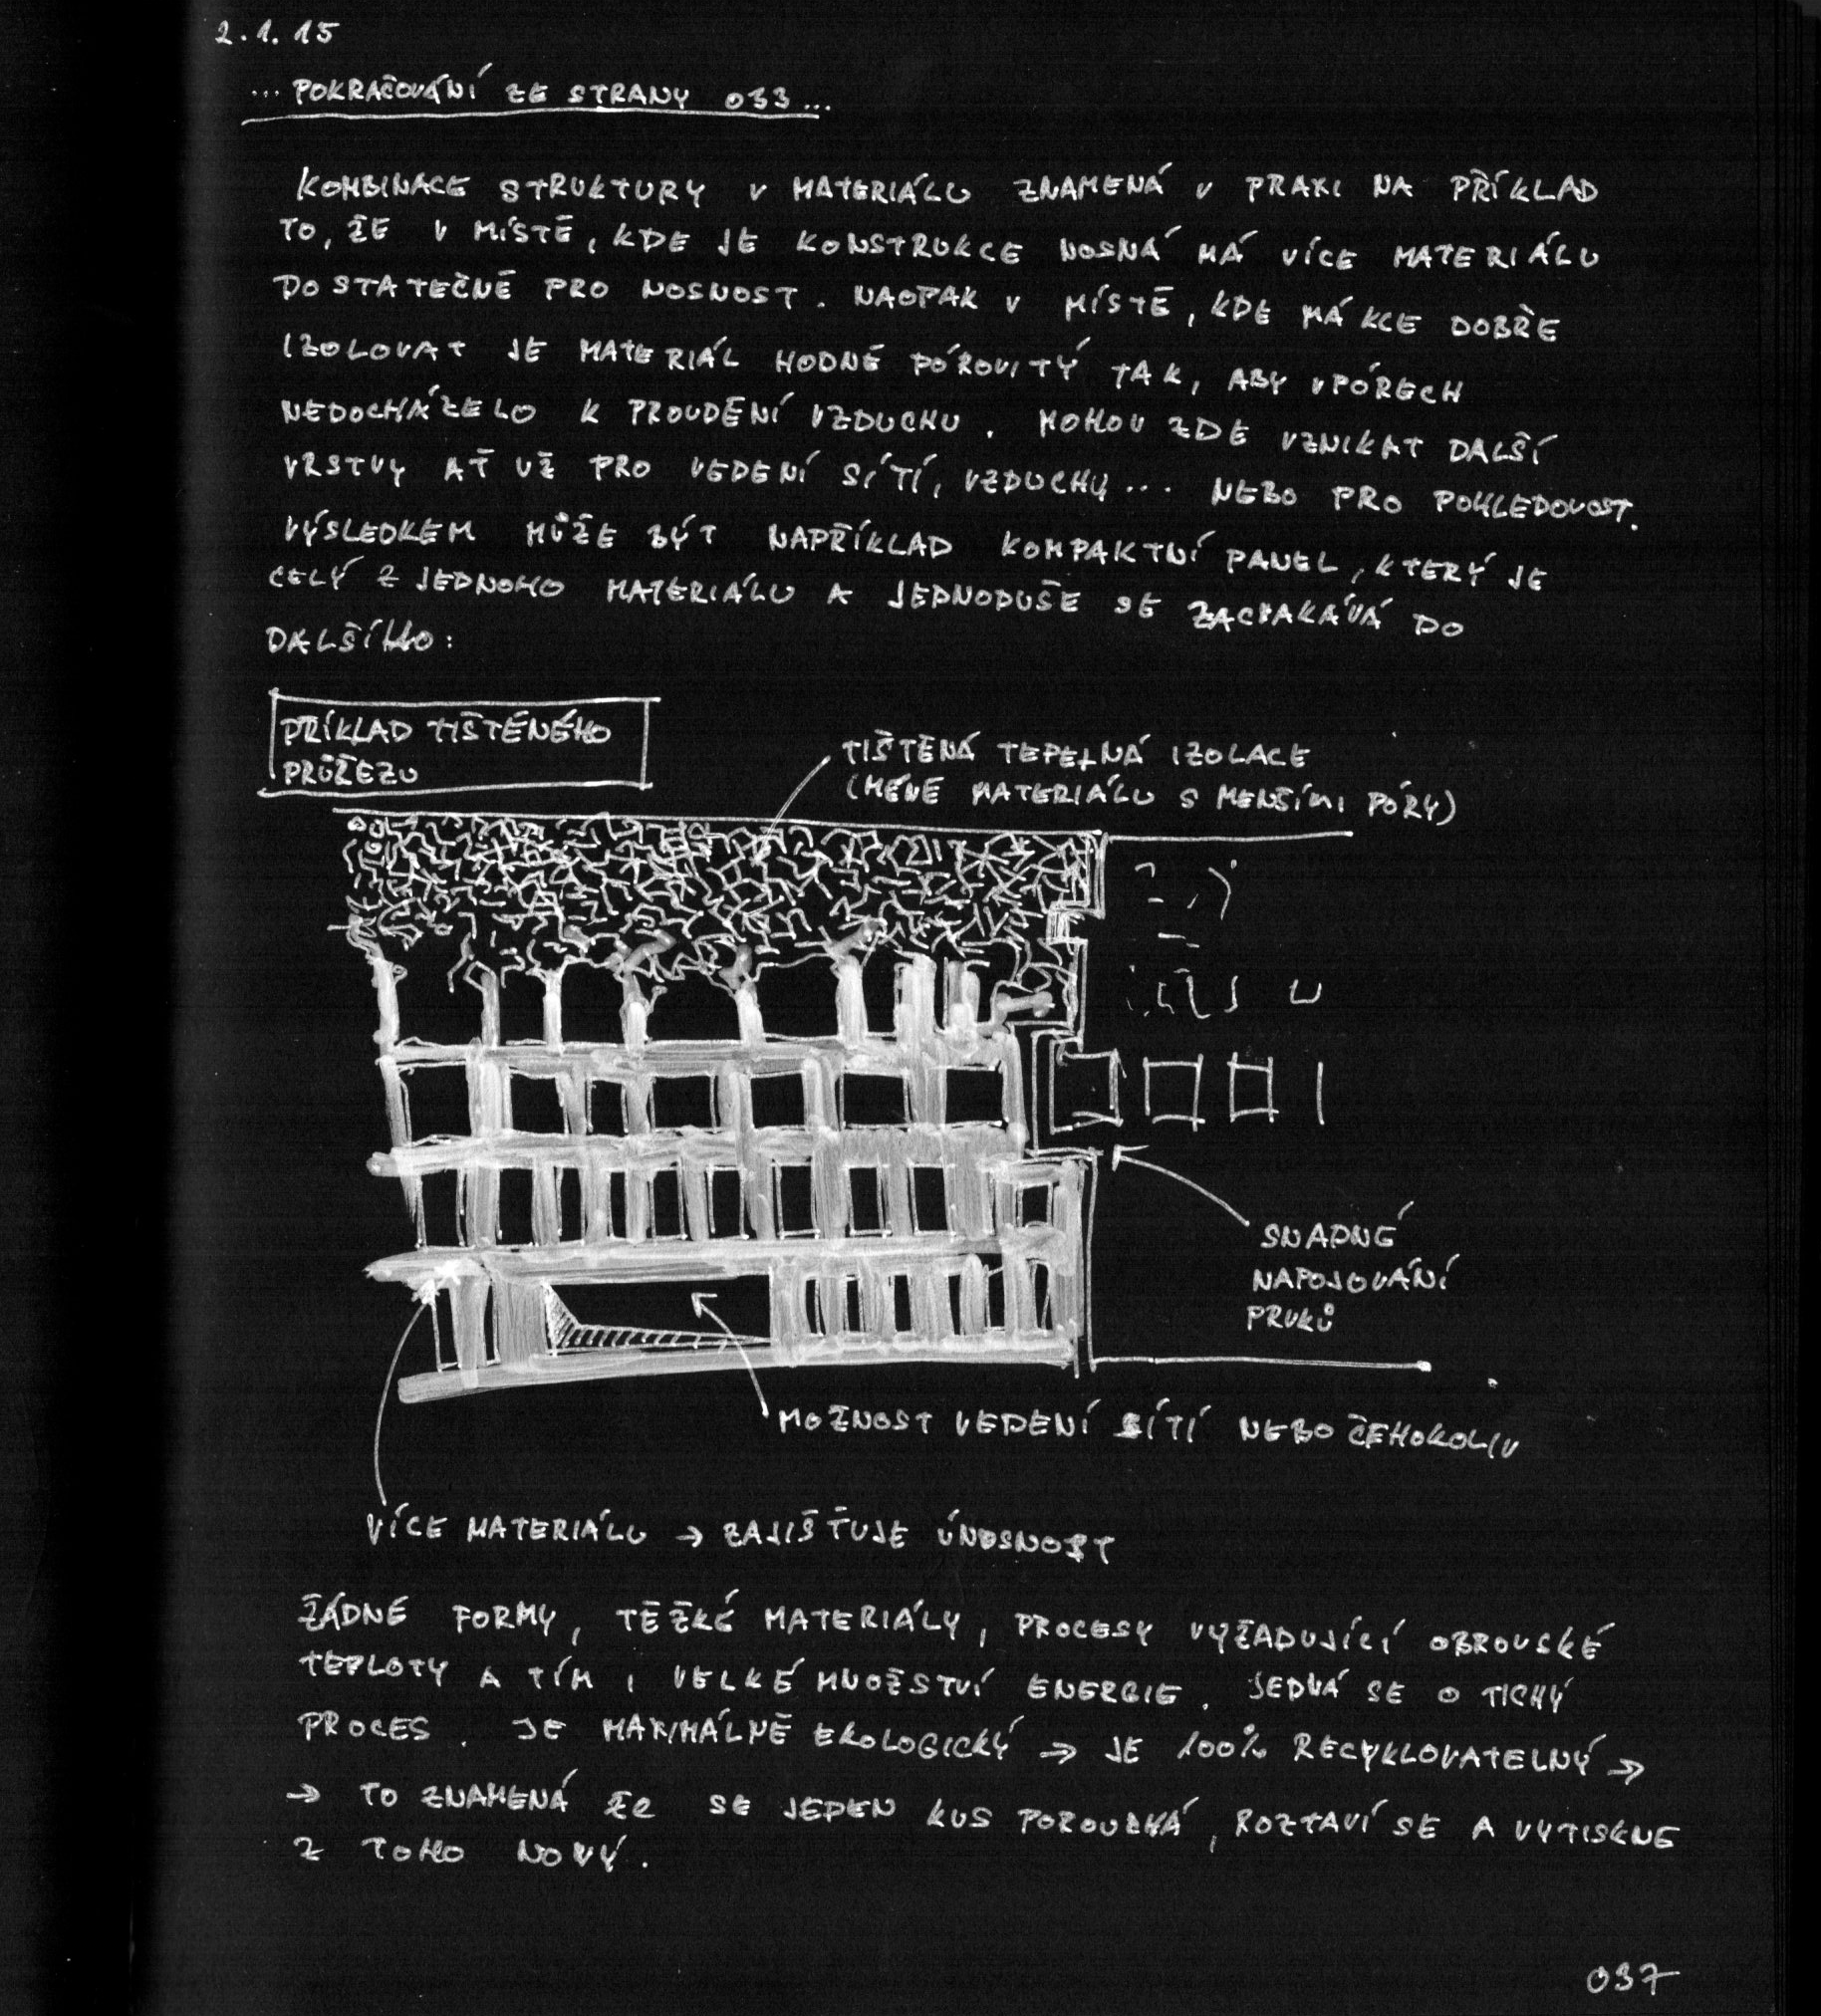 2.1.15
... POKRAČOVÁNÍ ZE STRANY 033...
KOMBINACE STRUKTURY V MATERIÁLU ZNAMENÁ V PRAXI NA PŘÍKLAD
TO, ŽE V MÍSTĚ, KDE JE KONSTRUKCE NOSNÁ MÁ VÍCE MATERIÁLU
DOSTATEČNĚ PRO NOSNOST. NAOPAK V MÍSTĚ, KDE MÁ KCE DOBŘE
IZOLOVAT JE MATERIÁL HODNĚ PÓROVITÝ TAK, ABY V PÓRECH
NEDOCHÁZELO K PROUDĚNÍ VZDUCHU. MOHOU ZDE VZNIKAT DALŠÍ
VRSTVY AŤ UŽ PRO VEDENÍ SÍTÍ, VZDUCHU... NEBO PRO POHLEDOVOST.
VÝSLEDKEM MŮŽE BÝT NAPŘÍKLAD KOMPAKTNÍ PANEL, KTERÝ JE
CELÝ Z JEDNOHO MATERIÁLU A JEDNODUŠE SE ZACVAKÁVÁ DO
DALŠÍHO:
PŘÍKLAD TIŠTĚNÉHO
PRŮŘEZU
TIŠTĚNÁ TEPELNÁ IZOLACE
(MÉNĚ MATERIÁLU S MENŠÍMI PÓRY)
SNADNÉ
NAPOJOVÁNÍ
PRVKŮ
MOŽNOST VEDENÍ SÍTÍ NEBO ČEHOKOLIV
VÍCE MATERIÁLU → ZAJIŠŤUJE ÚNOSNOST
ŽÁDNÉ FORMY, TĚŽKÉ MATERIÁLY, PROCESY VYŽADUJÍCÍ OBROVSKÉ
TEPLOTY A TÍM I VELKÉ MNOŽSTVÍ ENERGIE. JEDNÁ SE O TICHÝ
PROCES. JE MAXIMÁLNĚ EKOLOGICKÝ → JE 100% RECYKLOVATELNÝ →
→ TO ZNAMENÁ ŽE SE JEDEN KUS POROUCHÁ, ROZTAVÍ SE A VYTISKNE
Z TOHO NOVÝ.
037